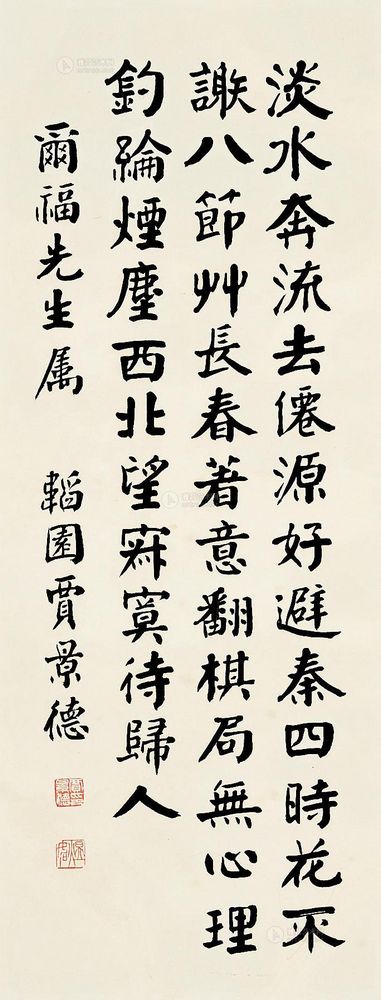 淡水奔流去僊源好避秦四時花不
謝八節艸長春著意翻棋局無心理
釣綸煙塵西北望寂寞待歸人
爾福先生属
韜園賈景德